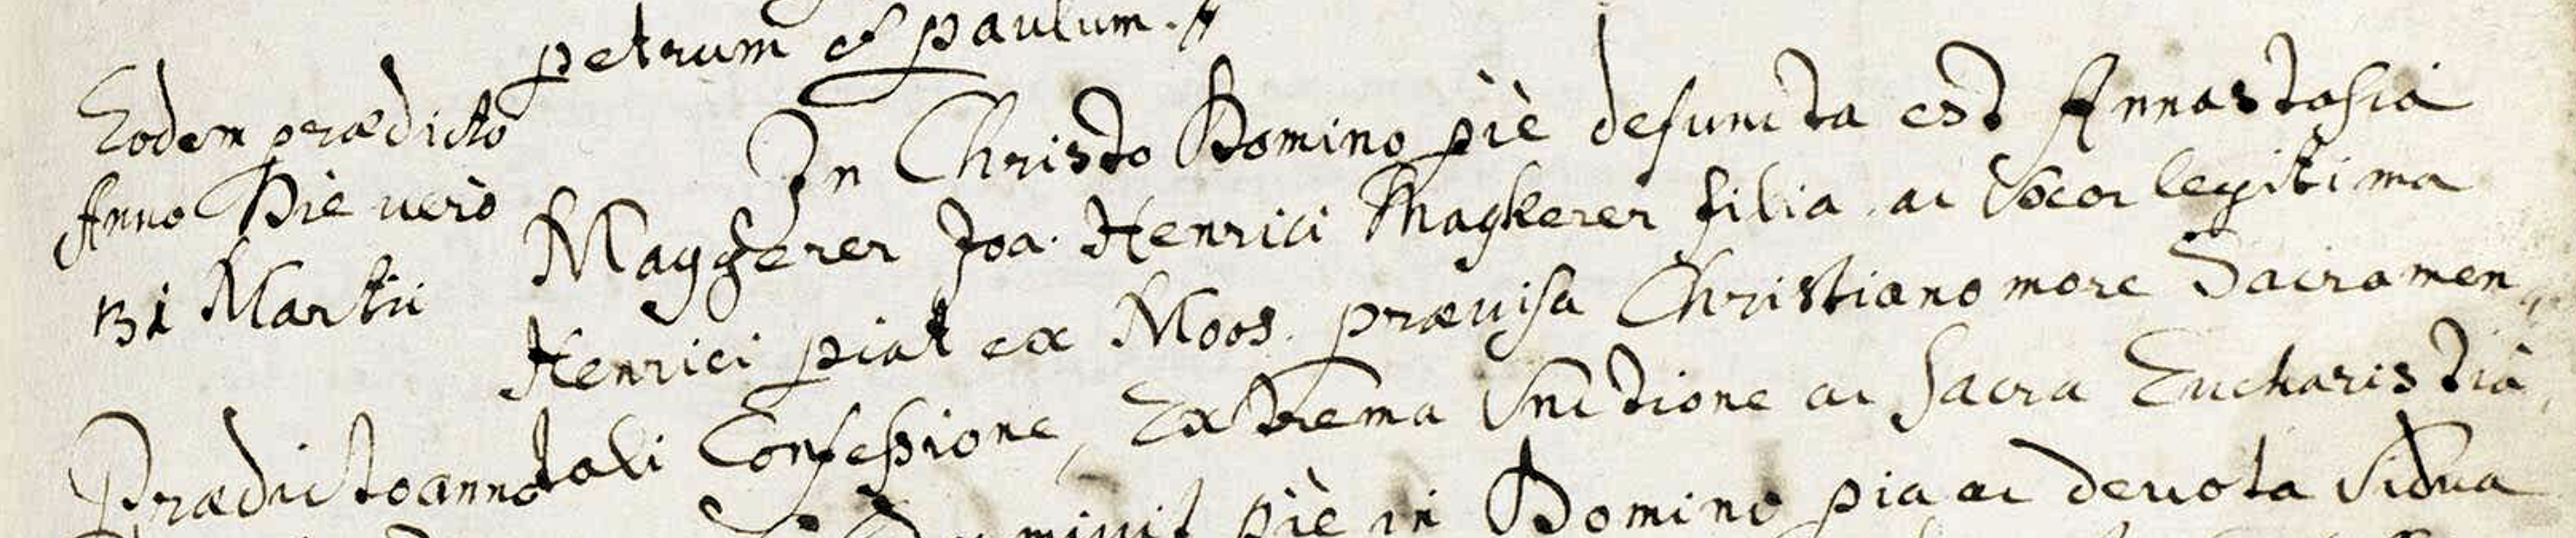 petrum et paulum.
Eodem prædicto
Anno Die uerò
31 Martii
In Christo Domino piè defuncta est Annastasia
Maggerer Joa. Henrici Magkerer filia ac Vxor legitima
Henrici piat ex Moos. præuisa Christiano more Sacramen
tali Confessione, Extrema Vnctione ac Sacra Eucharistiâ,
Prædicto anno
piè in Domino pia ac deuota Vidua